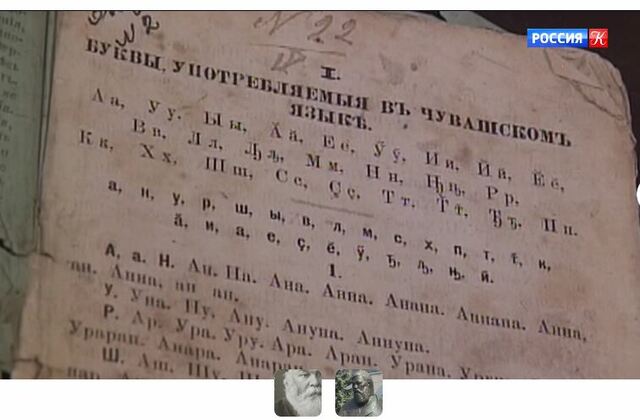 № 22
РОССИЯ К
I.
БУКВЫ, УПОТРЕБЛЯЕМЫЯ ВЪ ЧУВАШСКОМЪ
ЯЗЫКѢ.
Аа, Уу, Ыы, Ӑӑ, Ее, Ӳӳ, Ии, Йй, Ӗӗ,
Вв, Лл, Мм, Нн, Рр,
Кк, Хх, Шш, Сс, Ҫҫ, Тт, Пп.
а, н, у, р, ш, ы, в, л, м, с, х, п, т, к,
ӑ, и, е, ҫ, ӗ, ӳ, й.
1.
А, а, Н. Ан. На. Ана. Анна. Анана. Аннана. Анна,
ан. Анна, ан ан.
У. Уна. Ну. Ану. Ануна. Аннуна.
Р. Ар. Ура. Уру. Ара. Аран. Урана.
Ураран. Анара.
Ш. Аш. Шу.